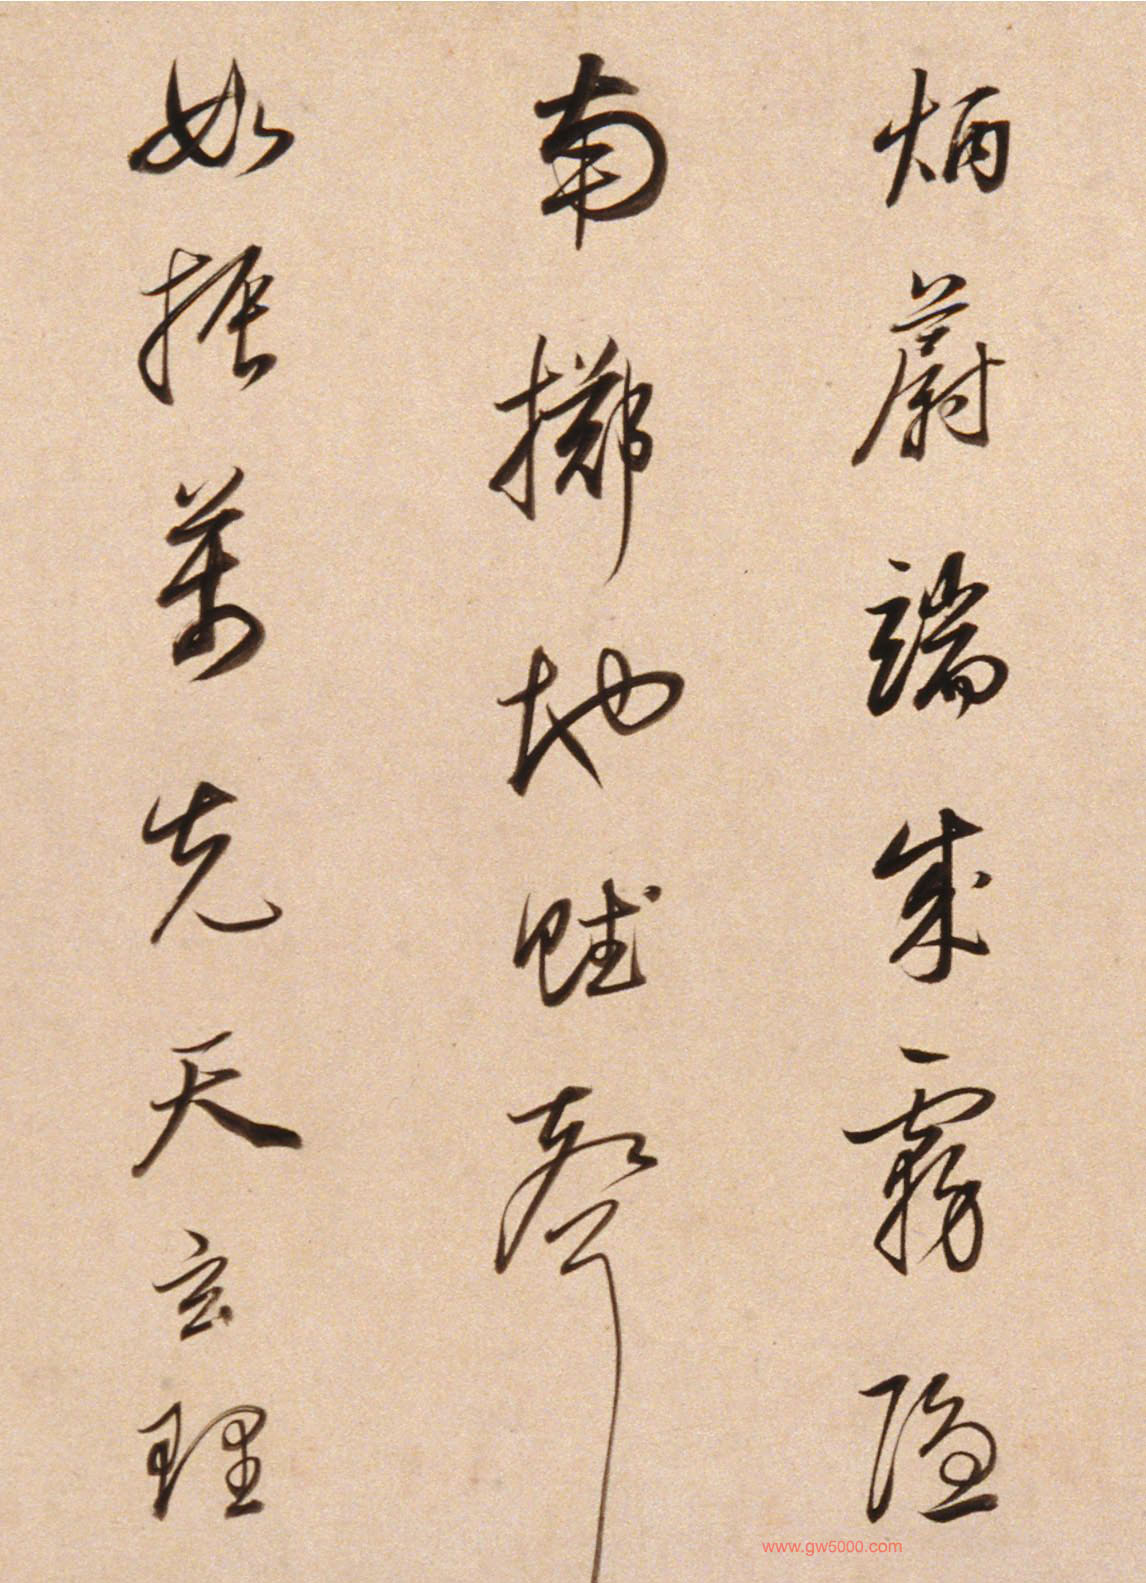 炳蔚端成霧隱
南擲地賦聲
如振萬先天玄理
www.gw5000.com